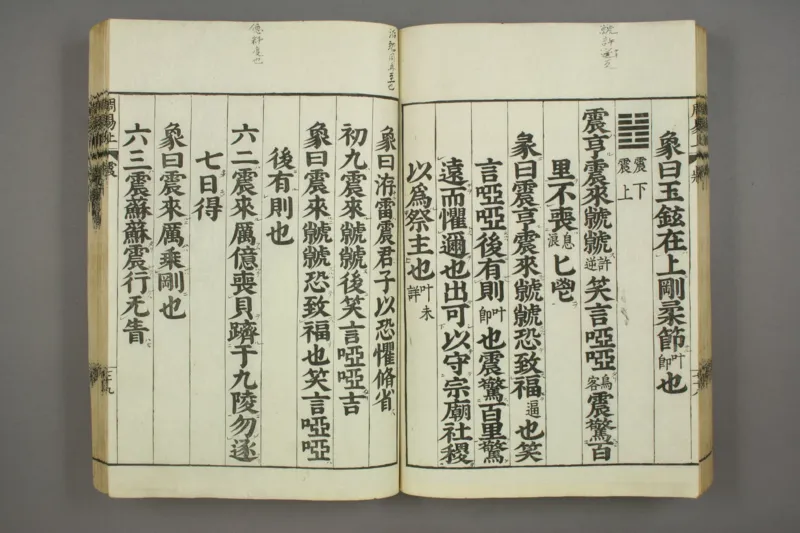 象曰玉鉉在上剛柔節叶即也
震下
震上
震亨震來虩虩許逆笑言啞啞烏客震驚百
里不喪息浪匕鬯
彖曰震亨震來虩虩恐致福逼也笑
言啞啞後有則叶即也震驚百里驚
遠而懼邇也出可以守宗廟社稷
以爲祭主也叶未詳
象曰洊雷震君子以恐懼脩省
初九震來虩虩後笑言啞啞吉
象曰震來虩虩恐致福也笑言啞啞
後有則也
六二震來厲億喪貝躋于九陵勿逐
七日得
象曰震來厲乘剛也
六三震蘇蘇震行无眚
周易上
震